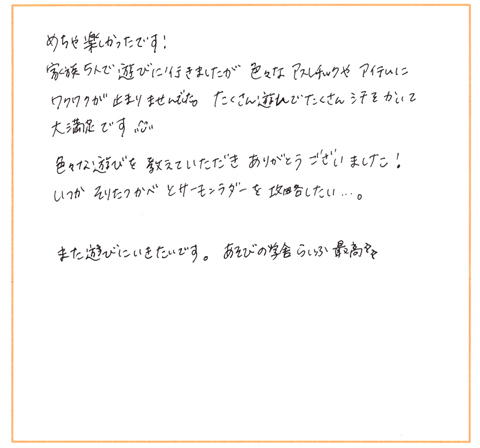 めちゃ楽しかったです!
家族5人で遊びに行きましたが 色々な アスレチックや アイテムに
ワクワクが止まりませんでした たくさん遊んでたくさん汗をかいて
大満足です
色々な遊びを教えていただき ありがとうございました!
いつか そりたつかべ とサーモンラダーを攻略したい…。
また遊びにいきたいです。 あそびの学舎 らいふ 最高